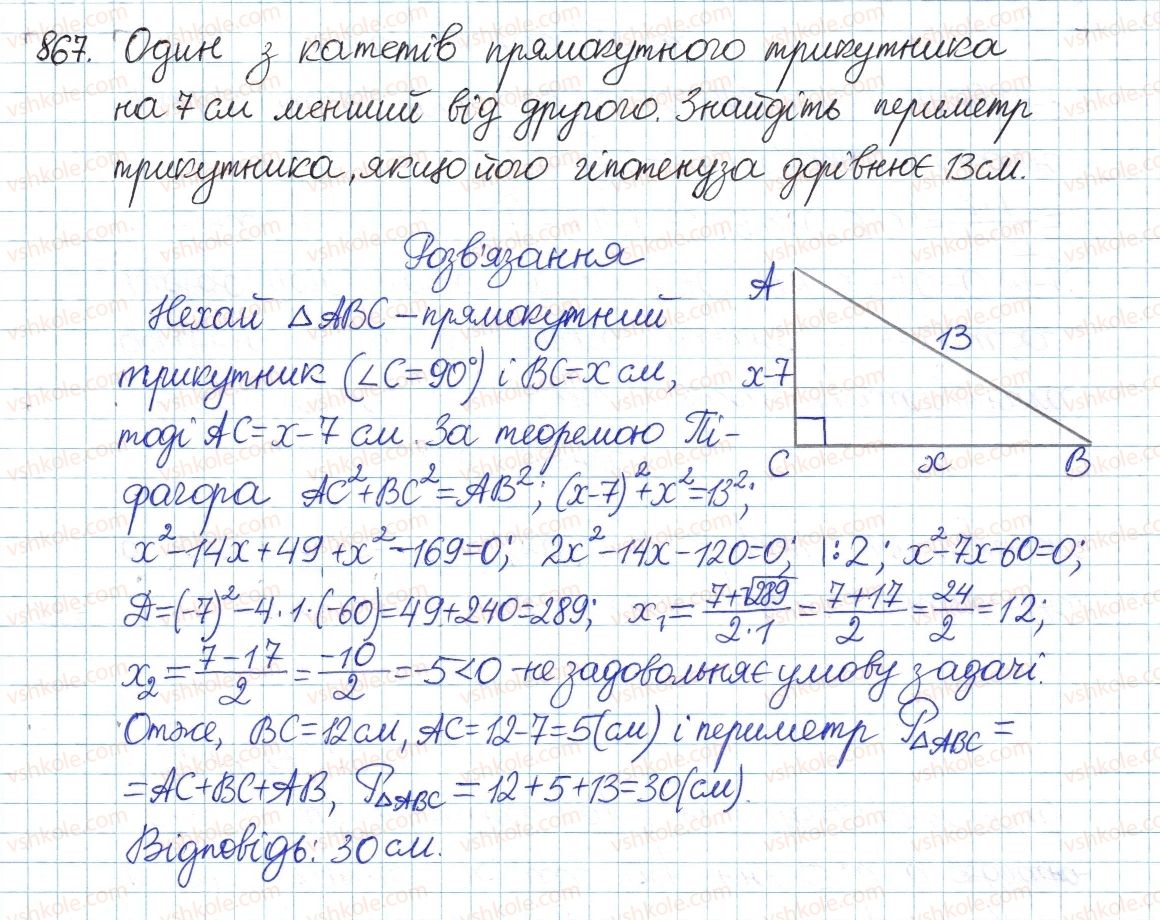 867. Один з катетів прямокутного трикутника
на 7 см менший від другого. Знайдіть периметр
трикутника, якщо його гіпотенуза дорівнює 13 см.
Розв'язання
Нехай △ABC – прямокутний
трикутник (∠C=90°) і BC=x см,
тоді AC=x-7 см. За теоремою Пі-
фагора AC²+BC²=AB²; (x-7)²+x²=13²;
x²-14x+49+x²-169=0; 2x²-14x-120=0; |:2; x²-7x-60=0;
D=(-7)²-4·1·(-60)=49+240=289; x₁=(7+√289)/(2·1)=(7+17)/2=24/2=12;
x₂=(7-17)/2=(-10)/2=-5<0 -не задовольняє умову задачі.
Отже, BC=12см, AC=12-7=5(см) і периметр P△ABC=
=AC+BC+AB, P△ABC=12+5+13=30(см).
Відповідь: 30 см.
A
13
x-7
C
x
B
vshkole.com